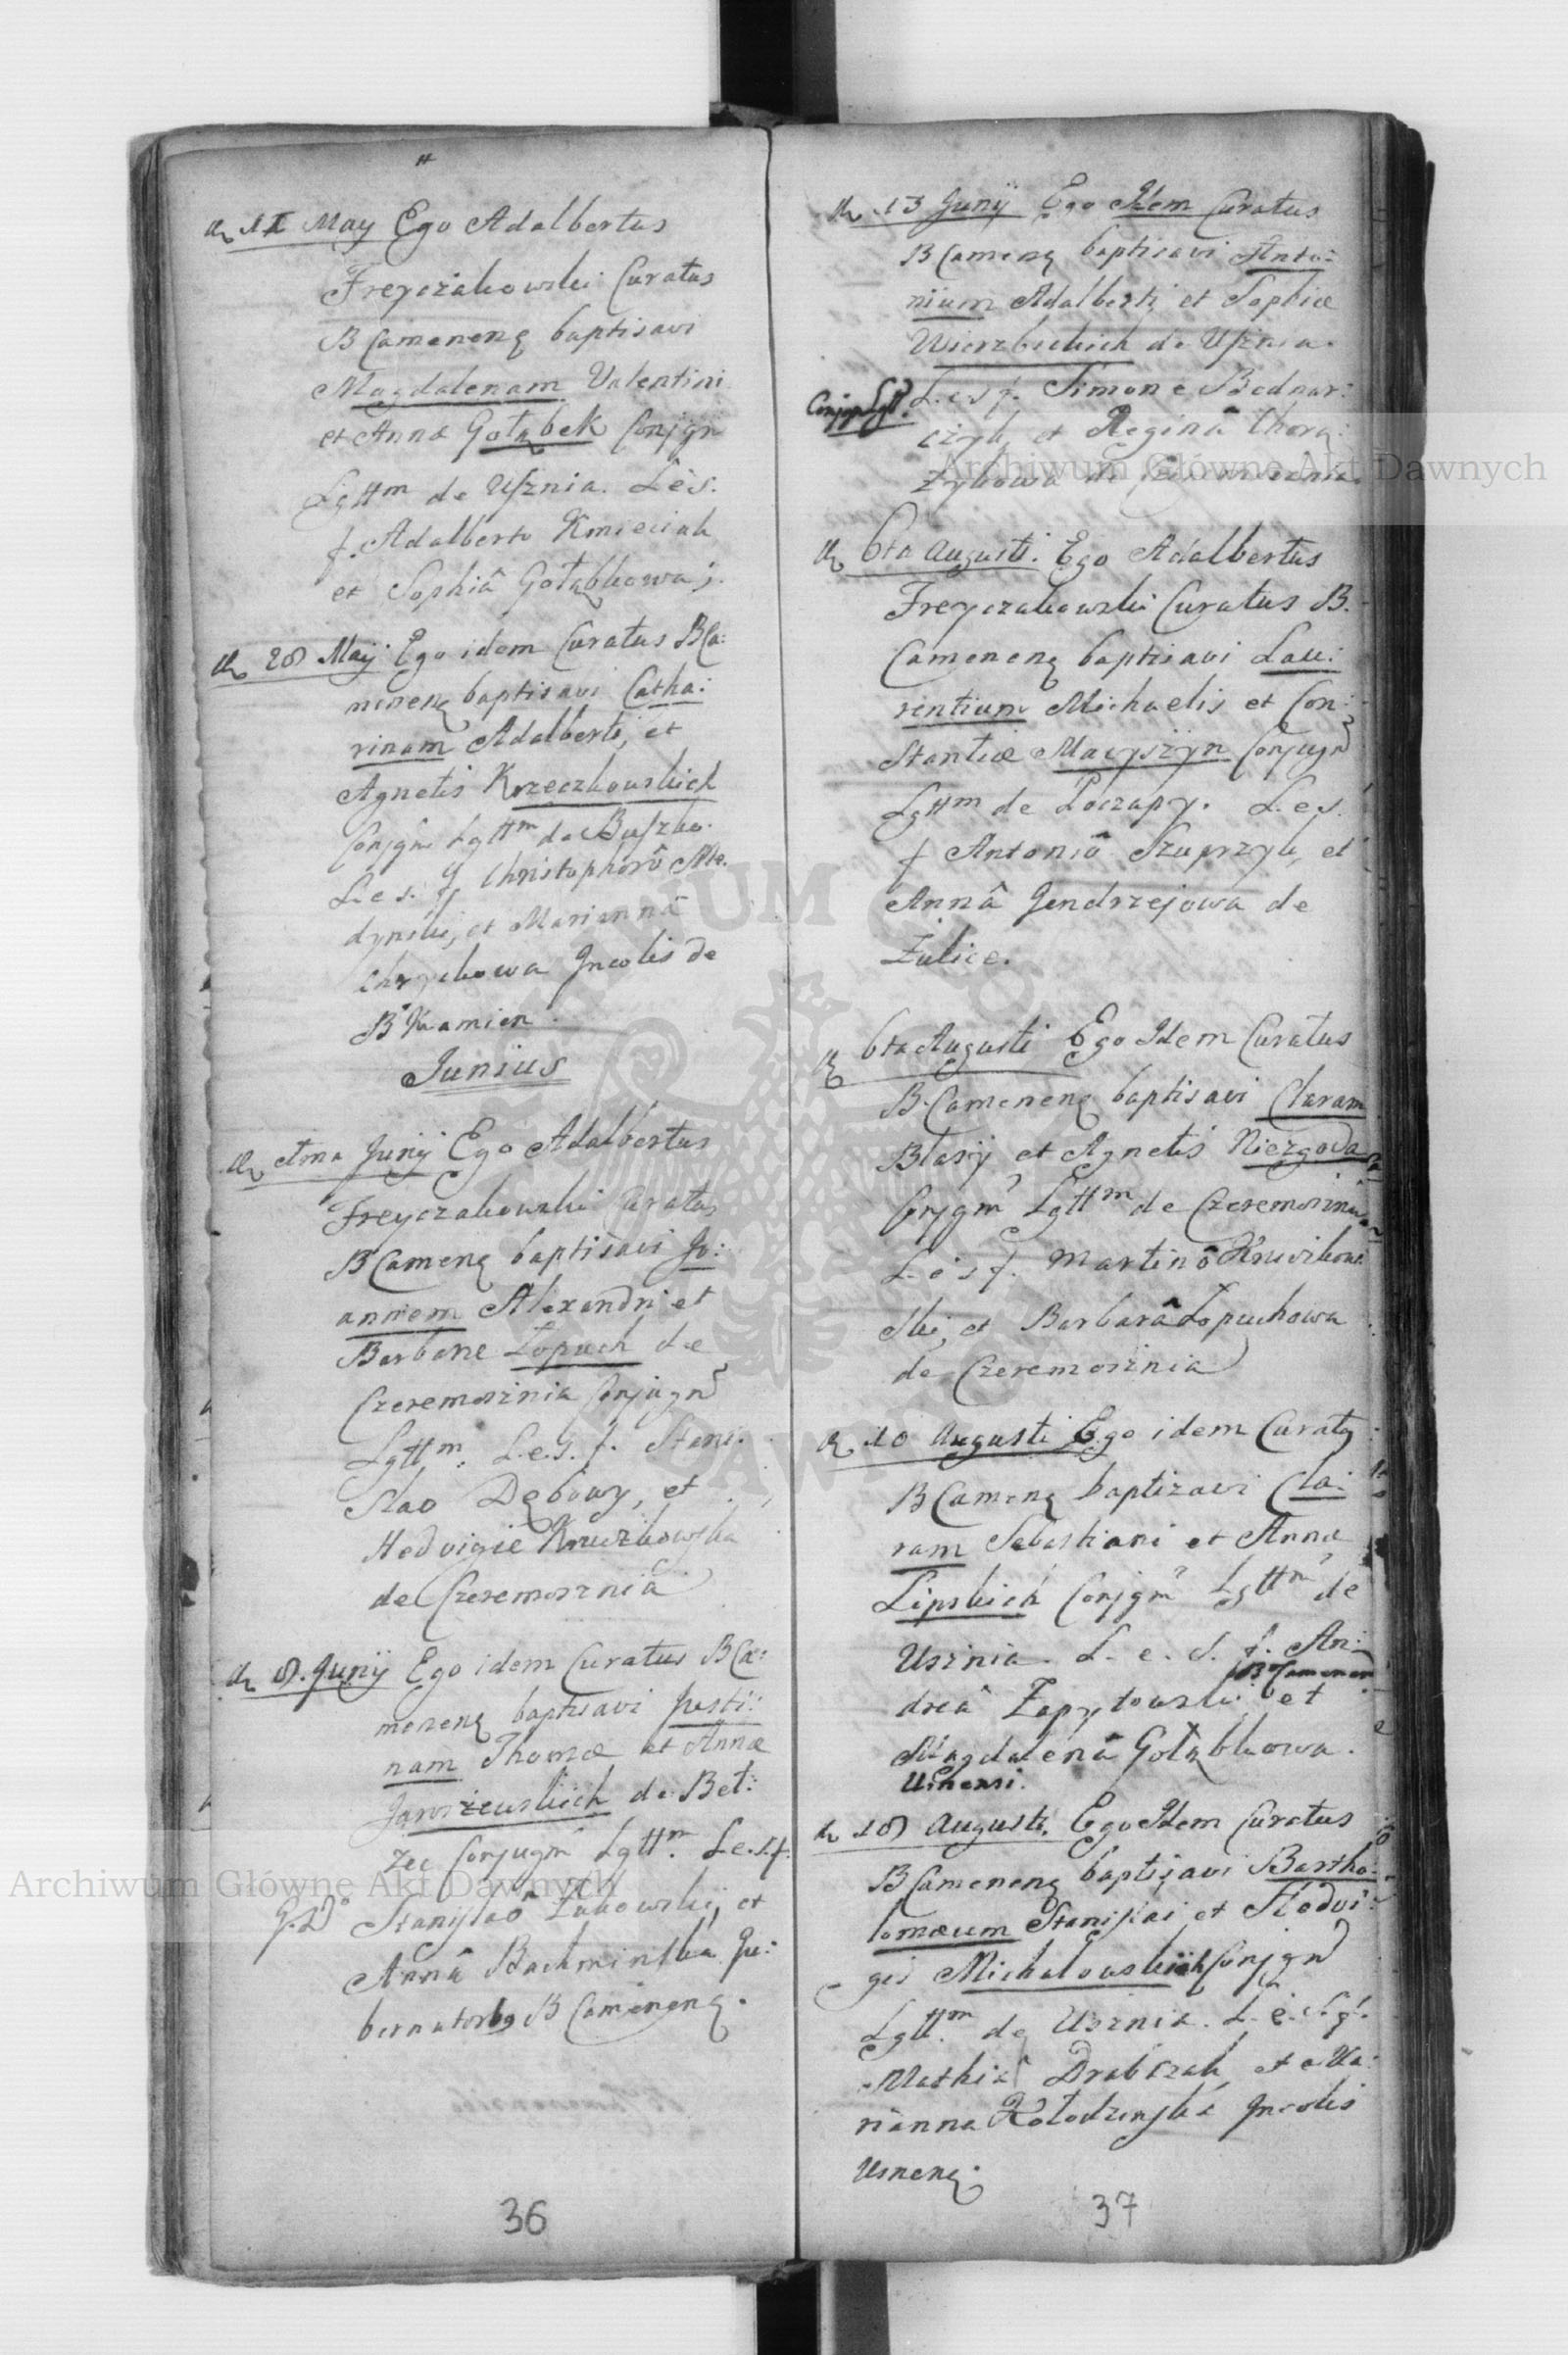 11 May Ego Adalbertus
Freyczakowski Curatus
B Camenenq baptisavi
Magdalenam Valentini
et Annæ Gołąbek Conjgn
Lgttm de Usznia. L e s.
f. Adalberto Kmieciak
et Sophiâ Gołąbkowa;.
28 Maij Ego idem Curatus B Ca:
menenq baptisavi Catha:
rinam Adalberti, et
Agnetis Krzeczkowskich
Conjgn Lgttm de Buszko.
L e s. f. Christophorô
et Mariannâ
Incolis de
B Kamien.
Junius
Junij Ego Adalbertus
Freyczakowski Curatus
B Camenq baptisavi Jo:
annem Alexandri et
Barbare Łopuch de
Czeremosznia Conjugn
Lgttm. L. e. s. f. Stani:
slao Dębowy, et
Hedvigie
de Czeremosznia
8. Junij Ego idem Curatus B Ca:
menenq baptisavi Justi:
nam Thomæ et Annæ
Jaroszewskich de Bet:
zec Conjugm Lgttm. L e. s. f.
G. D. Stanislaô Żukowski, et
Annâ Bachminska Gu:
bernatorbq B Camenenq.
36
13 Junij Ego Idem Curatus
B Camenq baptisavi Anto:
nium Adalberti et Sophiæ
Wierzbickich de Usznia.
Conjgn Lgtt. L. e. s f. Simone Bednar:
czyk, et Reginâ Chorą:
żykowa de
6ta Augusti. Ego Adalbertus
Freyczakowski Curatus B.
Camenenq baptisavi Lau:
rentium Michaelis et Con:
stantiæ Maćyszyn Conjugn
Lgttm de Łoczapy. L. e s.
f Antoniô Szuprzyk, et
Annâ Jendrzejowa de
Żulice.
6ta Augusti Ego Idem Curatus
B. Camenenq baptisavi Claram
Blasij et Agnetis Niezgoda
Conjgm Lgttm de Czeremosznia
L. e s f. Martinô
ski, et Barbarâ Łopuchowa
de Czeremosznia
10 Augusti Ego idem Curatq
B Camenq baptizavi Cla:
ram Sebastiani et Annæ
Lipskich Conjgm Lgttm de
Usznia. L. e. S. f. An:
dreâ Zapytowski B Camenen et
Magdalenâ Gołąbkowa.
Usnensi.
18 Augusti. Ego Idem Curatus
B Camenenq baptisavi Bartho:
lomæum Stanislai et Hedvi:
gis Michałowskich Conjgn
Lgttm. de Usznia. L. e. S. f.
Mathiâ Drabczak, et Ma:
rianna Kołodzinska Incolis
Usnenq.
37
Archiwum Główne Akt Dawnych
Archiwum Główne Akt Dawnych